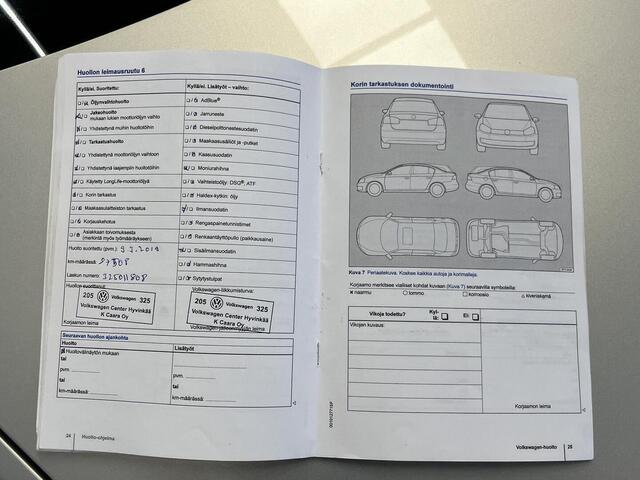 Huollon leimausruutu 6
Kyllä/ei. Suoritettu:
Öljynvaihtohuolto
Jaksohuolto
mukaan lukien moottoriöljyn vaihto
Yhdistettynä muihin huoltotöihin
Tarkastushuolto
Yhdistettynä moottoriöljyn vaihtoon
Yhdistettynä laajempiin huoltotöihin
Käytetty LongLife-moottoriöljyä
Korin tarkastus
Maakaasulaitteiston tarkastus
Korjauskehotus
Asiakkaan toivomuksesta
(merkintä myös työmääräykseen)
Huolto suoritettu (pvm.)
km-määrässä:
Laskun numero:
Huollon suorittanut:
205 Volkswagen 325
Volkswagen Center Hyvinkää
K Caara Oy
Korjaamon leima
Kyllä/ei. Lisätyöt – vaihto:
AdBlue®
Jarruneste
Dieselpolttonestesuodatin
Maakaasusäiliöt ja -putket
Kaasusuodatin
Moniurahihna
Vaihteistoöljy: DSG®, ATF
Haldex-kytkin: öljy
Ilmansuodatin
Rengaspainetunnistimet
Renkaantäyttöpullo (paikkausaine)
Sisäilmansuodatin
Hammashihna
Sytytystulpat
Volkswagen-liikkumisturva:
205 Volkswagen 325
Volkswagen Center Hyvinkää
K Caara Oy
Seuraavan huollon ajankohta
Huolto
Lisätyöt
Huoltovälinäytön mukaan
tai
pvm.
tai
km-määrässä:
tai
pvm.
tai
km-määrässä:
24 Huolto-ohjelma
Korin tarkastuksen dokumentointi
Kuva 7 Periaatekuva. Koskee kaikkia autoja ja korimalleja.
Korjaamo merkitsee vialliset kohdat kuvaan (Kuva 7) seuraavilla symboleilla:
naarmu lommo korroosio kiveniskemä
Vikoja todettu? Kyl-
lä: Ei:
Vikojen kuvaus:
Korjaamon leima
Volkswagen-huolto 25